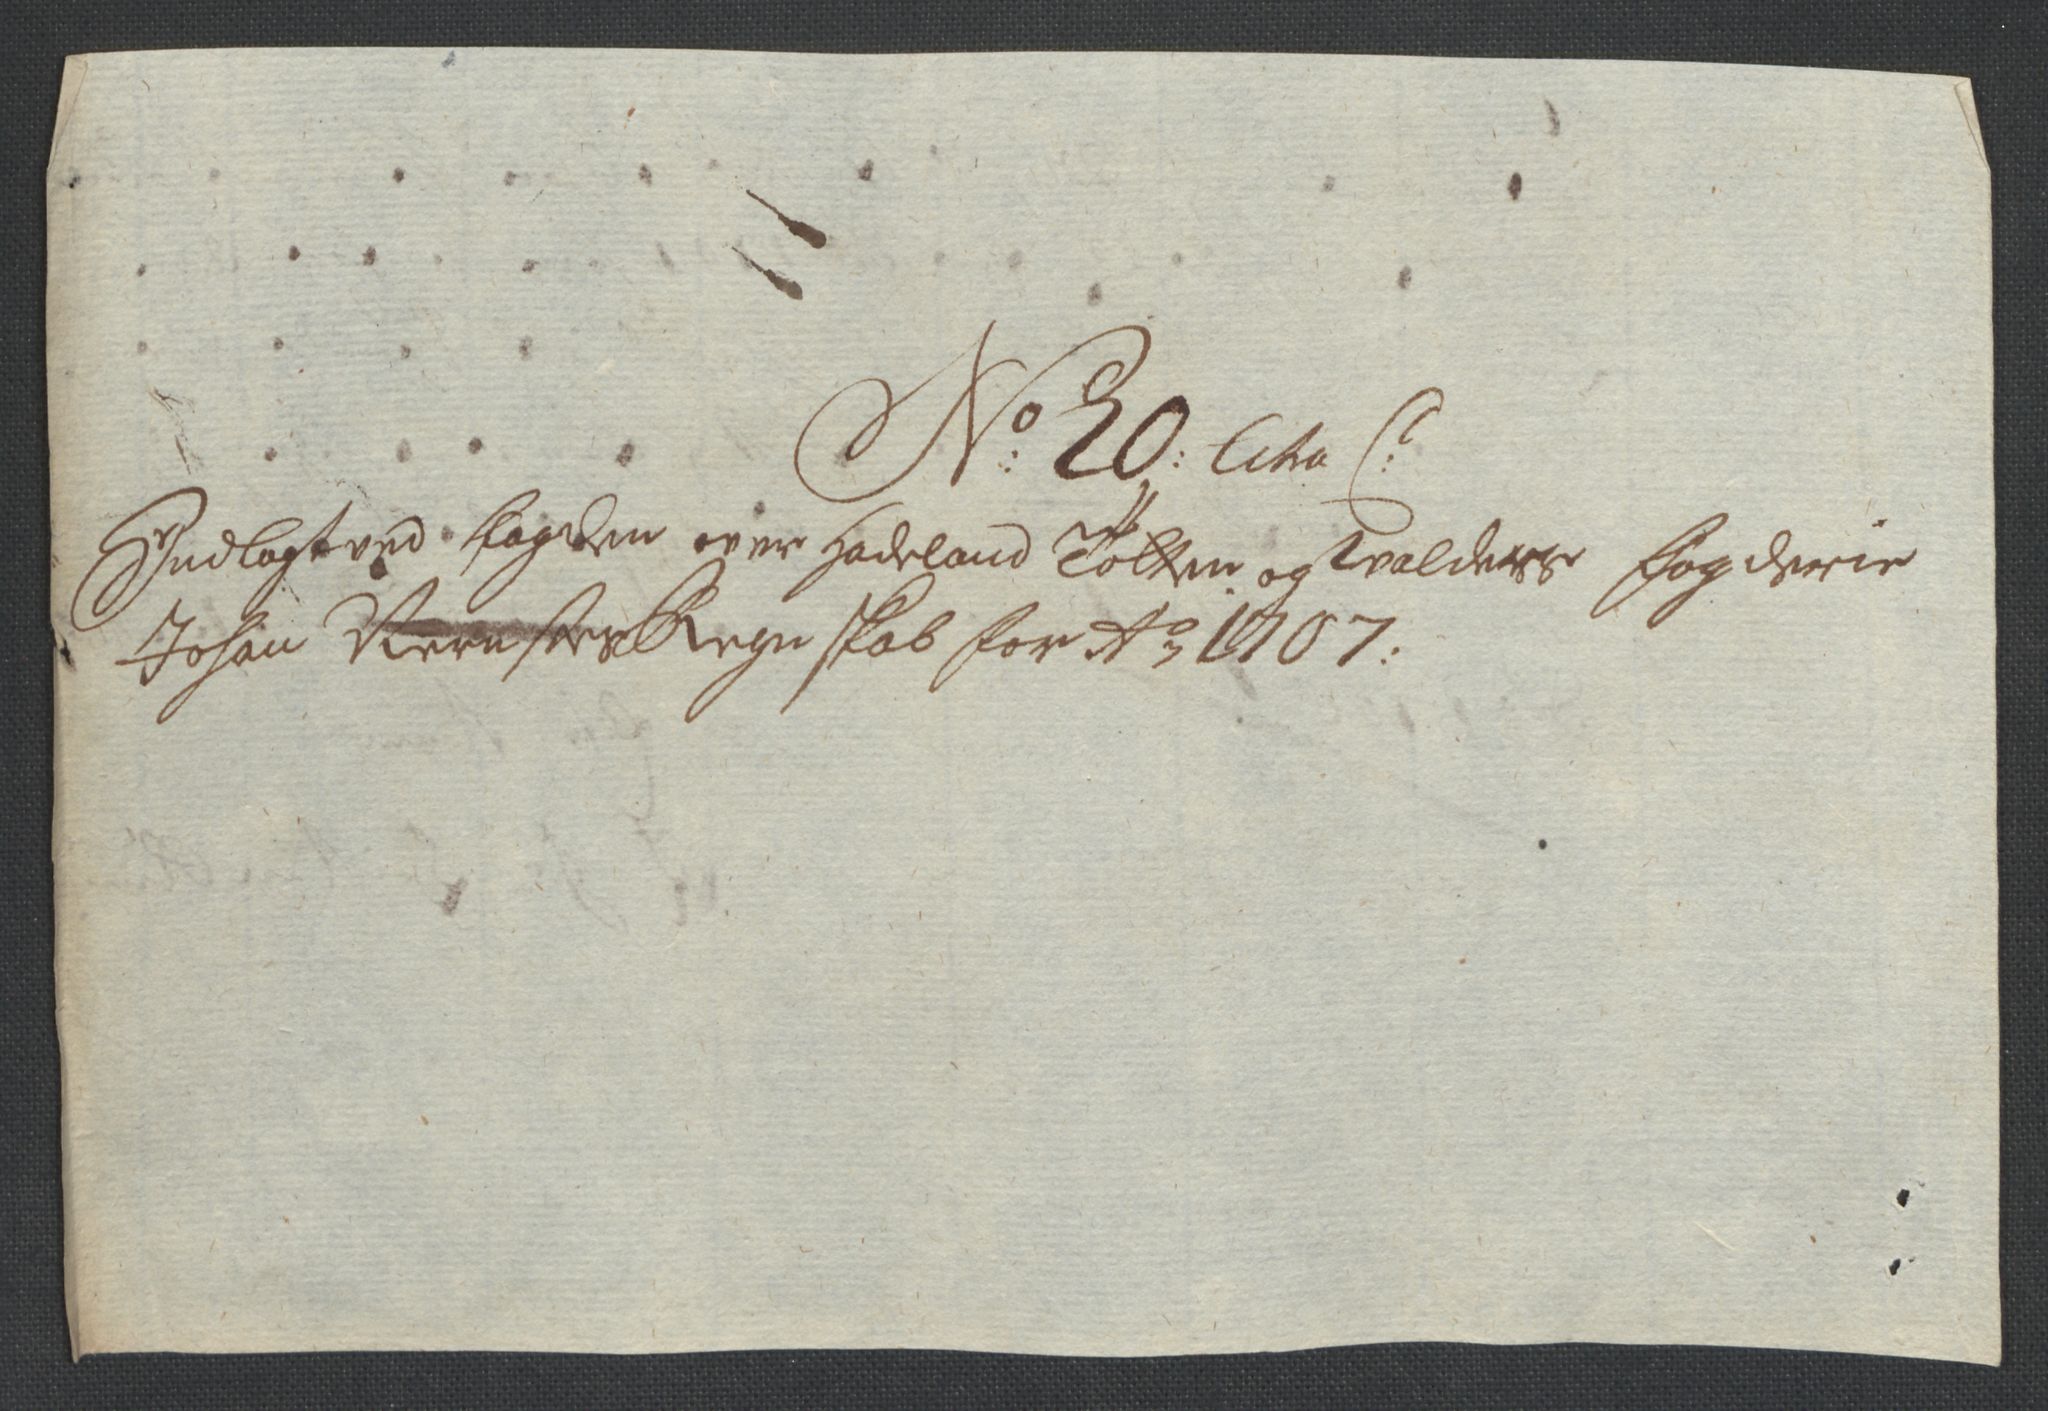 No: 20: Litra C:
Indlagt ved fogden over Hadeland Totten og Walders fogderie
Johan Regnskab for Ao 1707: